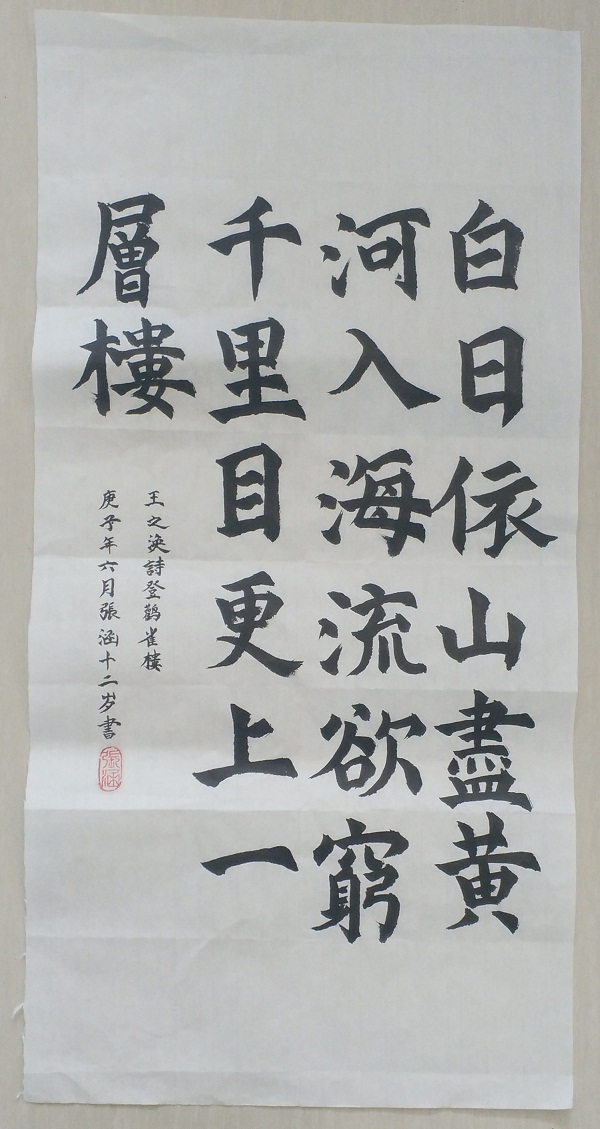 白日依山盡黄
河入海流欲窮
千里目更上一
層樓
王之渙詩登鹳雀樓
庚子年六月張涵十二岁書
張涵